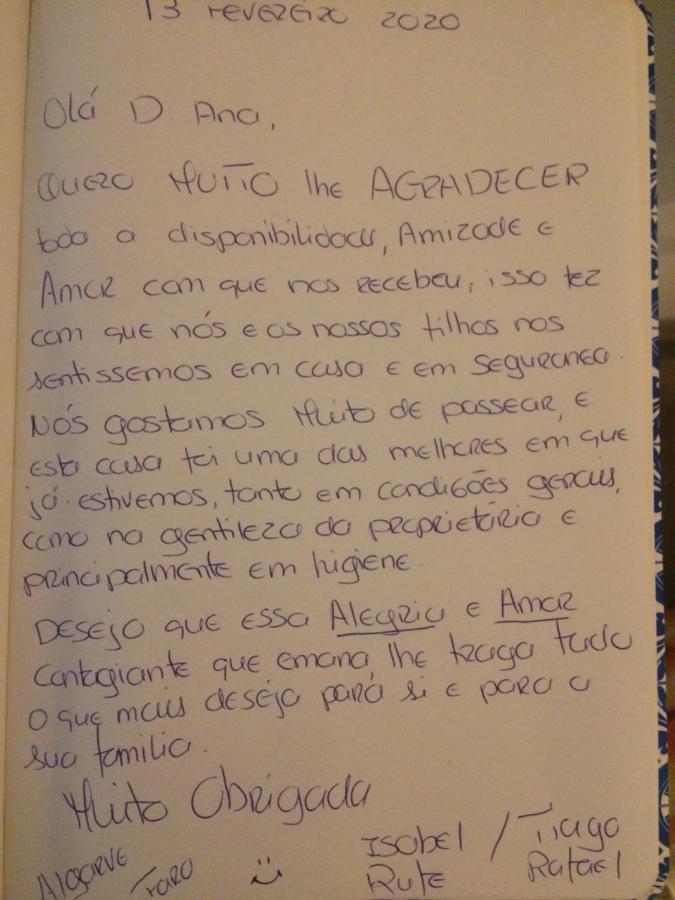 13 FEVEREIRO 2020
Olá D Ana,
QUERO MUITO lhe AGRADECER
toda a disponibilidade, Amizade e
Amor com que nos recebeu, isso fez
com que nós e os nossos filhos nos
sentissemos em casa e em segurança.
Nós gostamos Muito de passear, e
esta casa foi uma das melhores em que
já estivemos, tanto em condições gerais,
como na gentileza da proprietária e
principalmente em higiene.
DESEJO que essa Alegria e Amor
contagiante que emana lhe traga tudo
o que mais deseja para si e para a
sua familia.
Muito Obrigada
Algarve Faro :) Isabel / Tiago
Rute Rafael